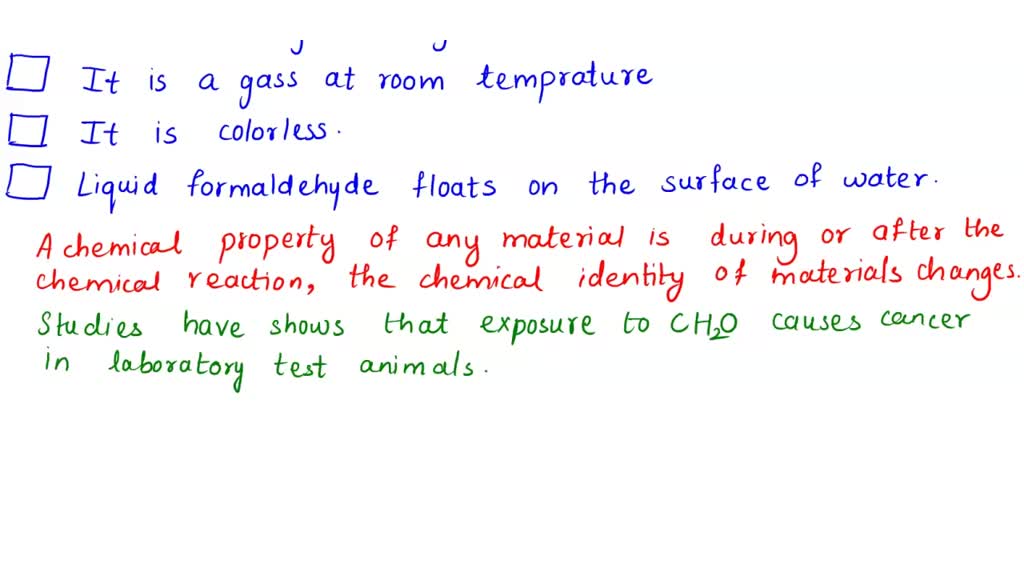 It is a gass at room temprature
It is colorless.
Liquid formaldehyde floats on the surface of water.
A chemical property of any material is during or after the
chemical reaction, the chemical identity of materials changes.
Studies have shows that exposure to CH₂O causes cancer
in laboratory test animals.